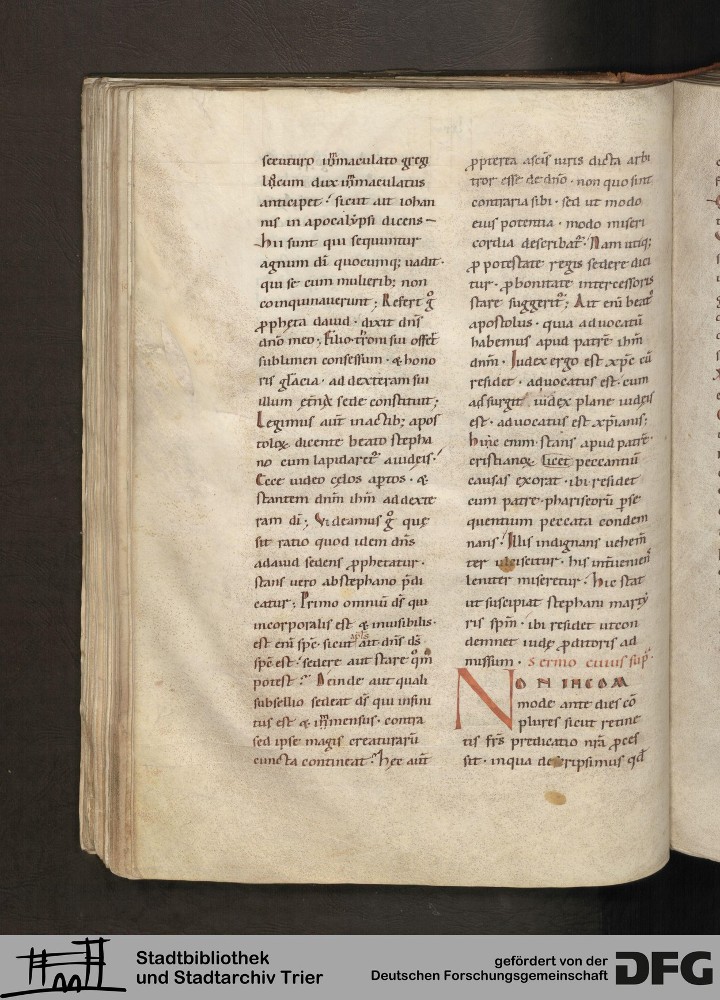 secuturo immaculato gregi
lȳcum dux immaculatus
anticipet; sicut ait iohan
nis in apocalypsi dicens
hii sunt qui sequuntur
agnum dī quocumq; uadit·
qui se cum mulierib; non
coinquinauerunt; Refert ḡ
ꝓpheta dauid· dixit dn̄s
dn̄o meo; Filio throni sui offert
sublimen consessum· & hono
ris gratia· ad dexteram sui
illum sede constituit;
Legimus aut̄ in actib; apos
toloꝝ dicente beato stepha
no cum lapidaret᷑ a iudeis;
Ecce uideo cęlos aptos· &
stantem dnm̄ ihm̄ ad dexte
ram dī; Videamus ḡ quę
sit ratio quod idem dn̄s
a dauid sedens ꝓphetatur·
stans uero ab stephano p̄di
catur; Primo omniū ds̄ qui
incorporalis est & inuisibilis·
est eni᷑ sps̄· sicut apl̄s ait dn̄s ds̄
sps̄ est; sedere aut stare qm̄
potest; Deinde aut quali
subsellio sedeat ds̄ qui infini
tus est & immensus· contra
sed ipse magis creaturarū
cuncta contineat; Hęc aut̄
ꝓpterea ascis uiris dicta arbi
tror esse de dn̄o· non quo sint
contraria sibi· sed ut modo
eius potentia· modo miseri
cordia describat᷑· Nam utiq;
ꝓ potestate regis sedere dici
tur· ꝓ bonitate intercessoris
stare suggerit᷑; Ait eni᷑ beat᷑
apostolus· quia aduocatū
habemus apud patrē ihm̄
dnm̄· Iudex ergo est xpc̄ cū
residet· aduocatus est cum
adsurgit· iudex plane iudeis
est· aduocatus est xp̄ianis;
hinc enim stans apud patrē·
cristianoꝝ licet peccantiū
causas exorat· ibi residet
cum patre· phariseorū pse
quentium peccata condem
nans· Illis indignans uehem̄
ter ulciscitur· his int̄uenien̄
leniter miseretur· hic stat
ut suscipiat stephani marty
ris spm̄· ibi residet ut con
demnet iudę ꝓditoris ad
missum· Sermo cuius sup̄·
NON INCOM
mode ante dies cō
plures sicut retine
tis frs̄ predicatio nr̄a ꝓces
sit· in qua descripsimus qd̄
Stadtbibliothek
und Stadtarchiv Trier
gefördert von der
Deutschen Forschungsgemeinschaft
DFG